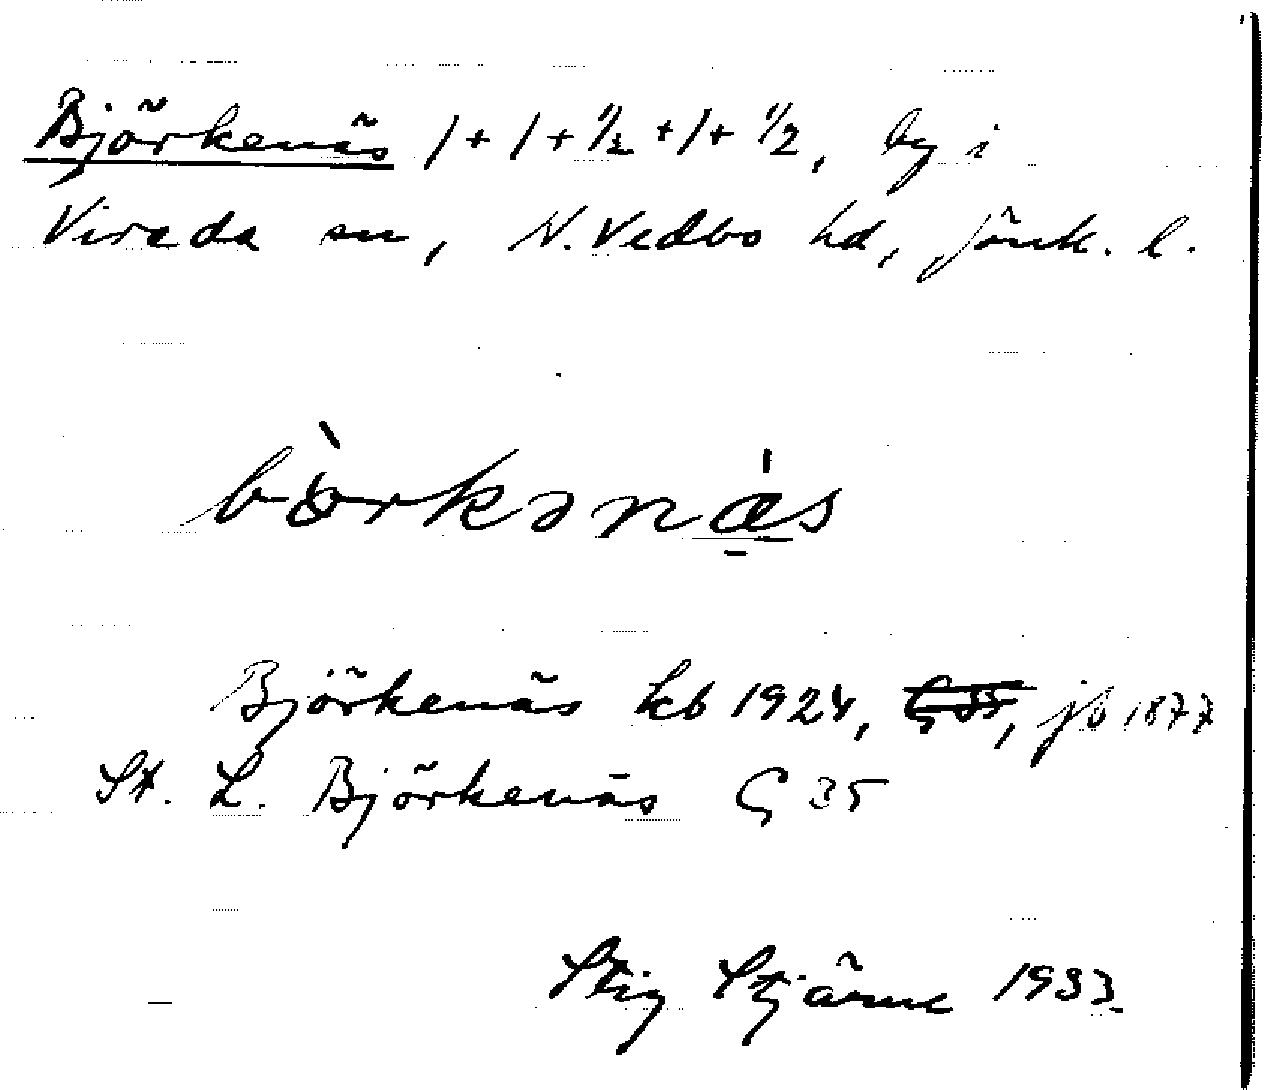 Björkenäs 1+1+1/2+1+1/2, by i
Vireda sn, N. Vedbo hd, Jönk. l.
bo̊̀rkənä́s
Björkenäs kb 1924, G 35, jb 1877
St. L. Björkenäs G 35
Stig Stjärne 1933